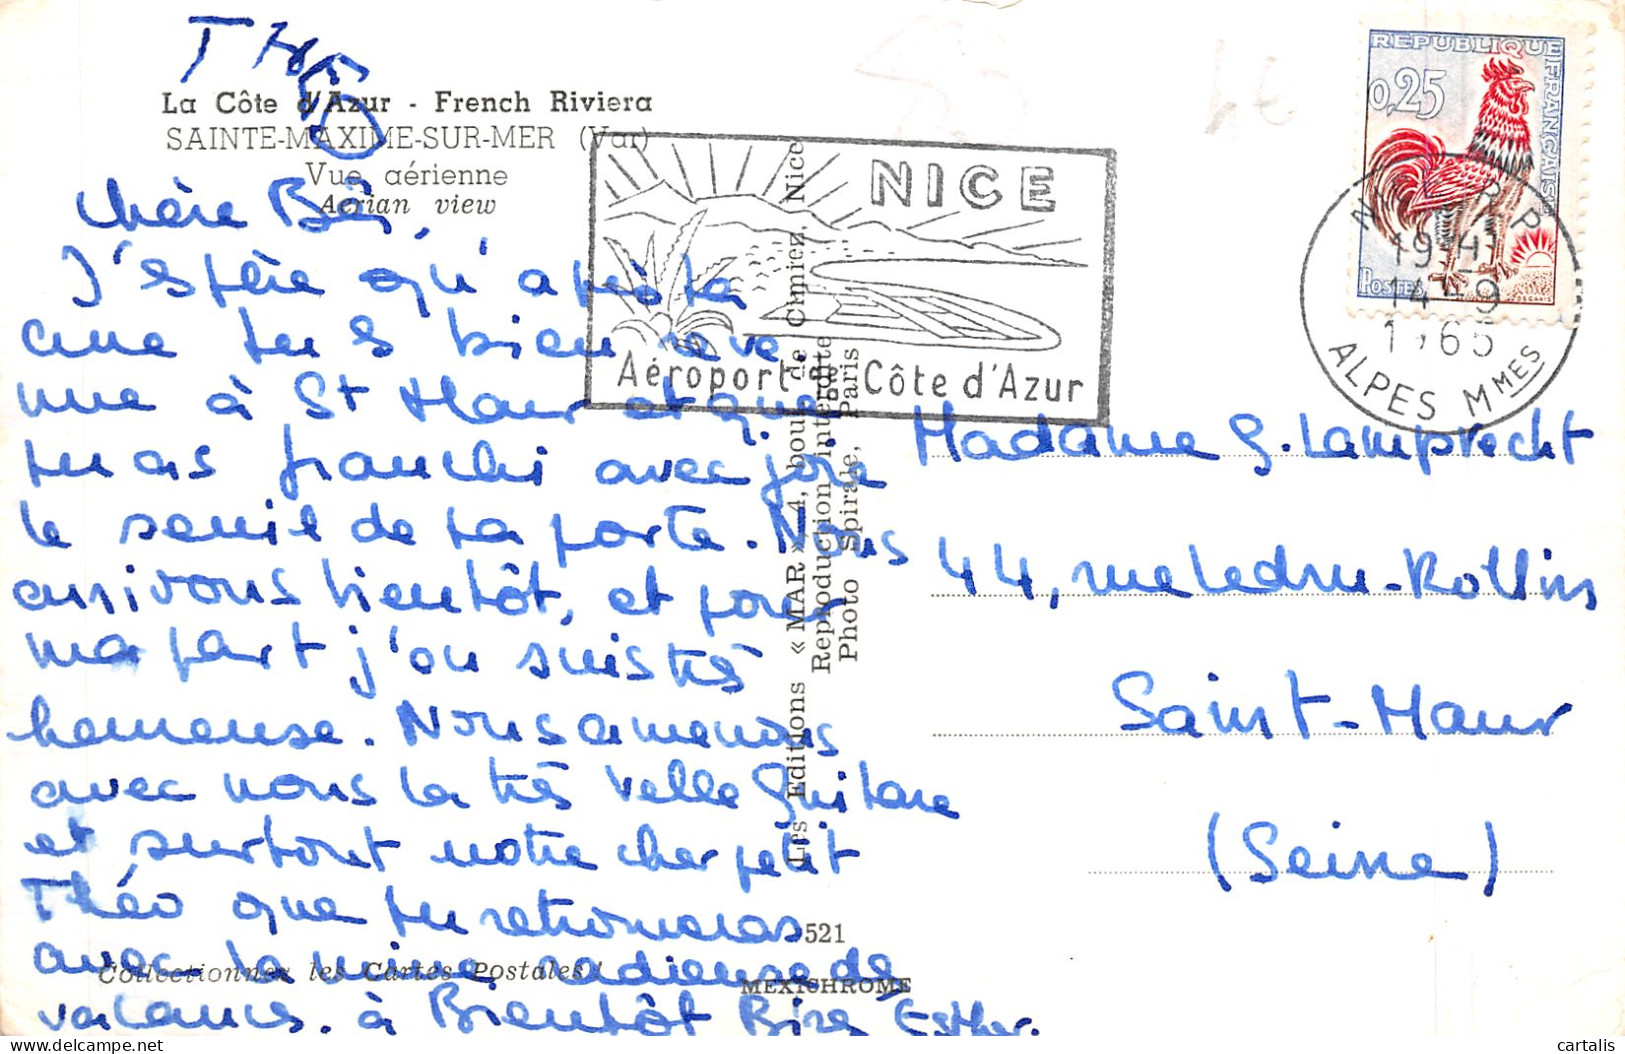 THÉO
La Côte d'Azur - French Riviera
SAINTE-MAXIME-SUR-MER (Var)
Vue aérienne
Aerian view
Chère Bé,
J'espère qu'
que tu es bien reve
nue à St Maur et que
tu as franchi avec joie
le seuil de ta porte. Nous
arrivons bientôt, et pour
ma part j'en suis très
heureuse. Nous amenons
avec nous la très belle guitare
et surtout notre cher petit
Théo que tu retrouveras
avec la mine radieuse de
vacances. à Bientôt Bises Esther.
Collectionnez les Cartes Postales!
Les Editions « MAR » 4, boul. de Cimiez, Nice
Reproduction interdite
Photo Spirale, Paris
521
MEXICHROME
NICE
Aéroport-Côte d'Azur
REPUBLIQUE FRANÇAISE
0,25
POSTES
NICE R.P.
19 H
14-9
1965
ALPES MMES
Madame G. Lamprecht
44, rue Ledru-Rollin
Saint-Maur
(Seine)
cartalis